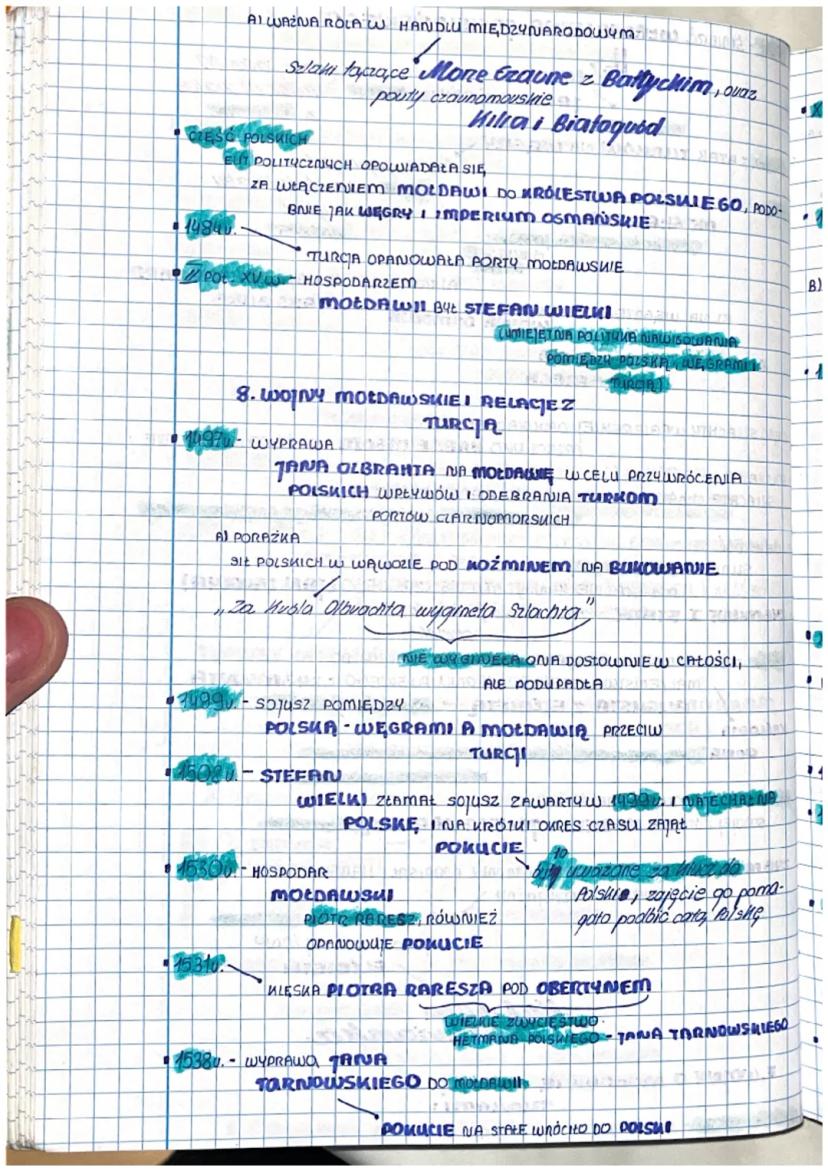 A) WAŻNA ROLA W HANDLU MIĘDZYNARODOWYM
Szlaki łączące Morze Czarne z Bałtyckim, oraz
porty czarnomorskie
Kilia i Białogród
• CZĘŚĆ POLSKICH
ELIT POLITYCZNYCH OPOWIADAŁA SIĘ
ZA WŁĄCZENIEM MOŁDAWI DO KRÓLESTWA POLSKIEGO, PODO-
BNIE JAK WĘGRY I IMPERIUM OSMAŃSKIE
• 1484r.
TURCJA OPANOWAŁA PORTY MOŁDAWSKIE
• II POŁ. XV w - HOSPODARZEM
MOŁDAWII BYŁ STEFAN WIELKI
(UMIEJĘTNA POLITYKA NAWIGOWANIA
POMIĘDZY POLSKĄ, WĘGRAMI I
TURCJĄ)
8. WOJNY MOŁDAWSKIE I RELACJE Z
TURCJĄ
• 1497r. - WYPRAWA
JANA OLBRAHTA NA MOŁDAWIĘ W CELU PRZYWRÓCENIA
POLSKICH WPŁYWÓW I ODEBRANIA TURKOM
PORTÓW CZARNOMORSKICH
A) PORAŻKA
SIŁ POLSKICH W WĄWOZIE POD KOŹMINEM NA BUKOWANIE
„Za Króla Olbrachta wyginęła Szlachta"
NIE WYGINĘŁA ONA DOSŁOWNIE W CAŁOŚCI,
ALE PODUPADŁA
• 1499r. - SOJUSZ POMIĘDZY
POLSKĄ - WĘGRAMI A MOŁDAWIĄ PRZECIW
TURCJI
• 1502r. - STEFAN
WIELKI ZŁAMAŁ SOJUSZ ZAWARTY W 1499r. I NAJECHAŁ NA
POLSKĘ I NA KRÓTKI OKRES CZASU ZAJĄŁ
POKUCIE
• 1530r. - HOSPODAR
było uważane za klucz do
MOŁDAWSKI
Polski, zajęcie go poma-
PIOTR RARESZ, RÓWNIEŻ
gało podbić całą Polskę
OPANOWUJE POKUCIE
• 1531r.
KLĘSKA PIOTRA RARESZA POD OBERTYNEM
WIELKIE ZWYCIĘSTWO
HETMANA POLSKIEGO - JANA TARNOWSKIEGO
• 1538r. - WYPRAWA JANA
TARNOWSKIEGO DO MOŁDAWII
POKUCIE NA STAŁE WRÓCIŁO DO POLSKI
B)